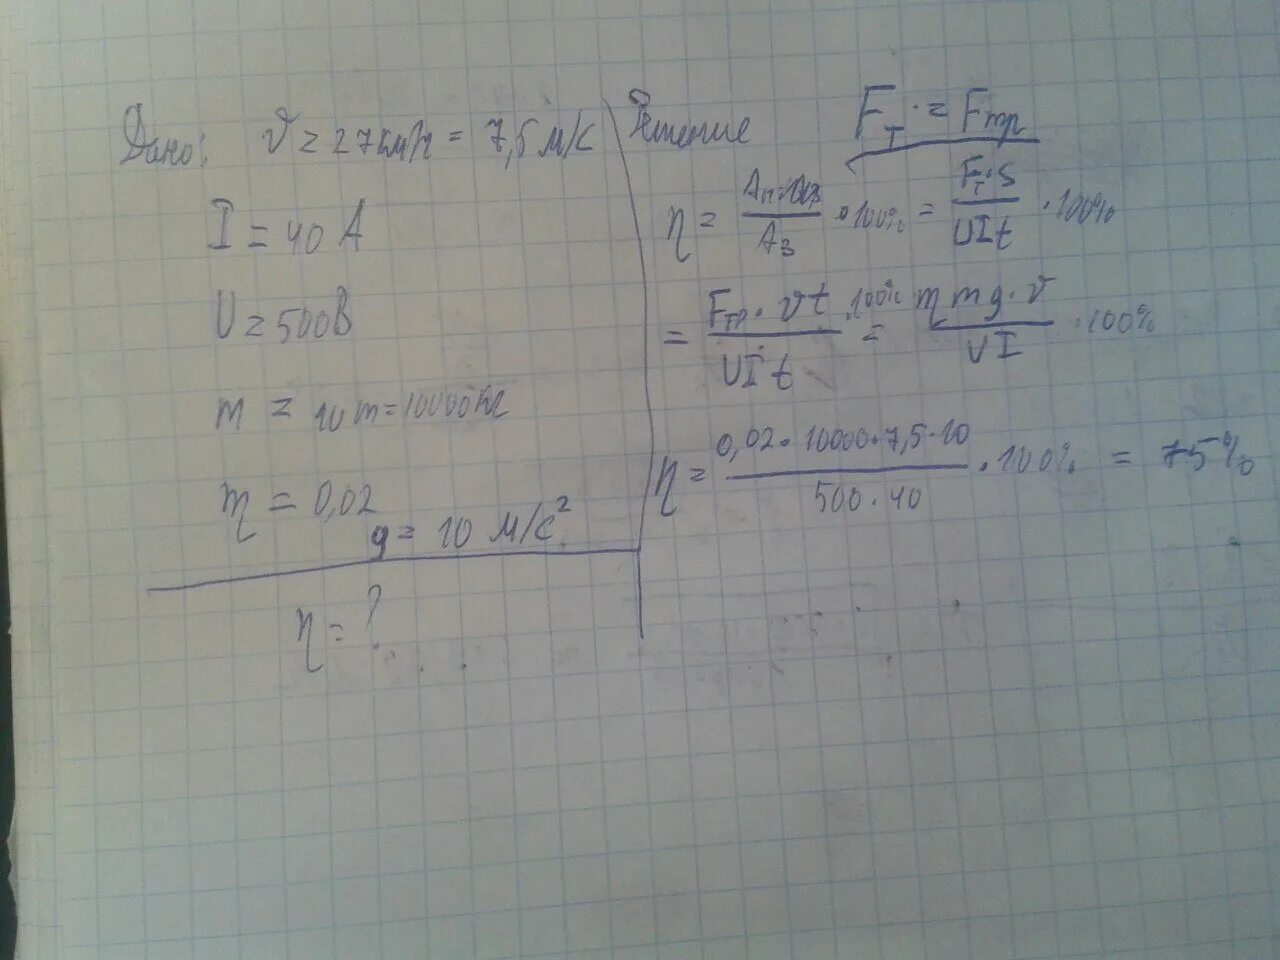 Дано: v = 27 км/ч = 7,5 м/с
I = 40 А
U = 500 В
m = 10 т = 10000 кг
η = 0,02
g = 10 м/с²
η = ?
Решение
F_т = F_тр
η = A_п / A_з · 100% = F_т · S / UIt · 100%
= F_тр · vt / UIt · 100% = η mg · v / UI · 100%
η = 0,02 · 10000 · 7,5 · 10 / 500 · 40 · 100% = 75%